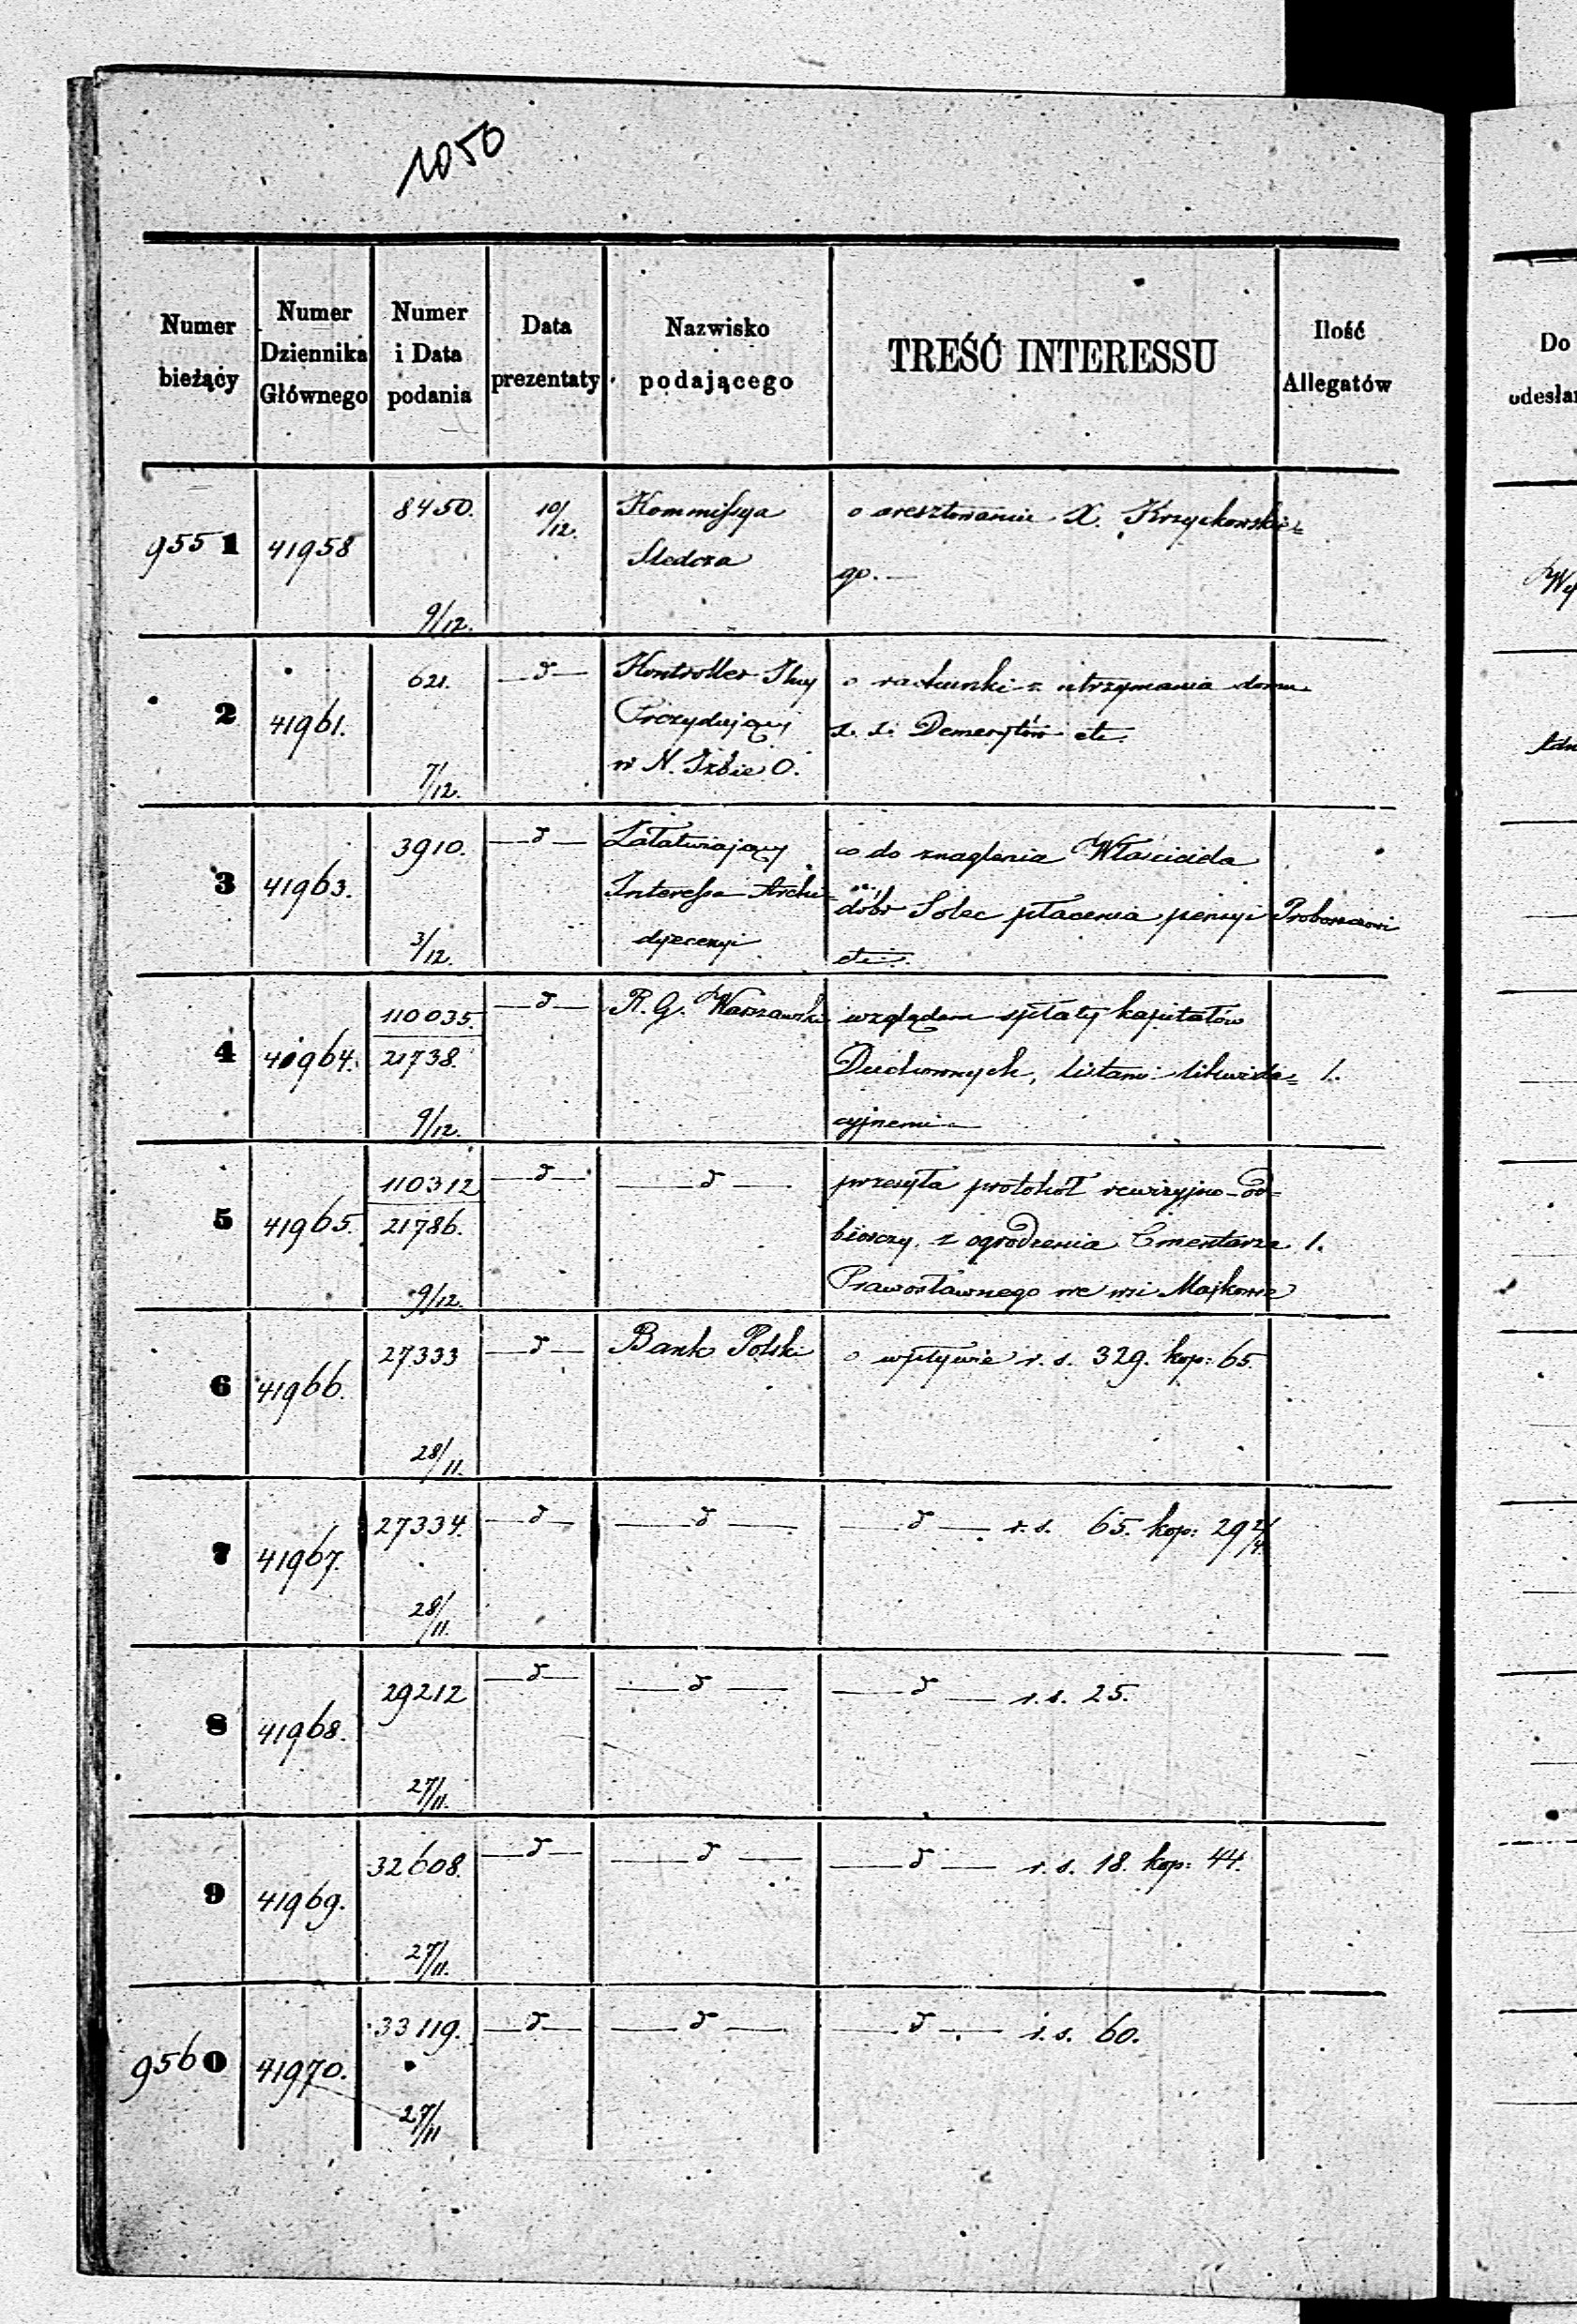 1050
Numer bieżący
Numer Dziennika Głównego
Numer i Data podania
Data prezentaty
Nazwisko podającego
TREŚĆ INTERESSU
Ilość Allegatów
Do
odesłan
9551 41958 8450. 9/12. 10/12. Kommissya o aresztowaniu X. Krzyckowskie=
Sledcza go. —
2 41961. 621. 7/12. —d— Kontroller Słuy o rachunki z utrzymania domu
Prezydujący x. x. Demerytów etc.
w N. Izbie O.
3 41963. 3910. 3/12. —d— Załatwiający co do znaglenia Właściciela
Interessa Archi= dóbr Solec płacenia pensyi Proboszczowi
dyecezyi etc:
4 41964. 110035. —d— R. G. Warszawski względem spłaty kapitałów
21738. Duchownych, listami likwida= 1.
9/12. cyjnemi —
5 41965. 110312 —d— —d— przesyła protokół rewizyjno-od=
21786. biorczy z ogrodzenia Cmentarza 1.
9/12. Prawosławnego we wsi Majkowie
6 41966. 27333 28/11. —d— Bank Polski o wpływie r. s. 329. kop: 65.
7 41967. 27334. 28/11. —d— —d— —d— r. s. 65. kop: 29 2/4.
8 41968. 29212 27/11. —d— —d— —d— r. s. 25.
9 41969. 32608. 27/11. —d— —d— —d— r. s. 18. kop: 44.
9560 41970. 33119. 27/11 —d— —d— —d— r. s. 60.